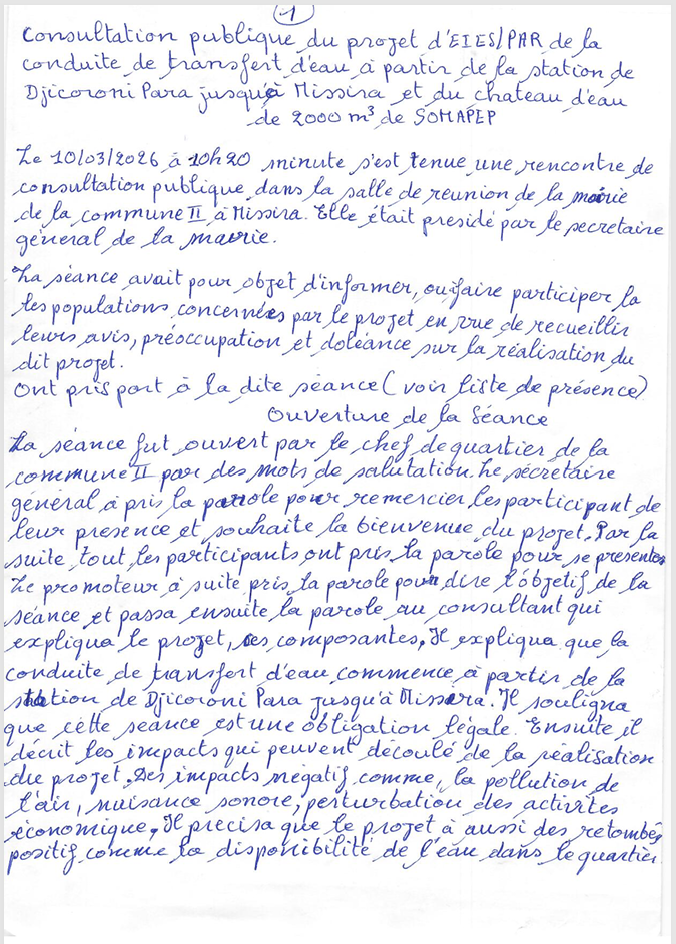 1
Consultation publique du projet d'EIES/PAR de la
conduite de transfert d'eau à partir de la station de
Djicoroni Para jusqu'à Missira et du chateau d'eau
de 2000 m³ de SOMAPEP
Le 10/03/2026 à 10h20 minute s'est tenue une rencontre de
consultation publique dans la salle de reunion de la mairie
de la commune II à Missira. Elle était presidé par le secretaire
géneral de la mairie.
La séance avait pour objet d'informer, ou faire participer la
les populations concernées par le projet en vue de recueillir
leurs avis, préoccupation et doléance sur la réalisation du
dit projet.
Ont pris part à la dite séance (voir liste de présence)
Ouverture de la Séance
La séance fut ouvert par le chef de quartier de la
commune II par des mots de salutation. Le sécretaire
général à pris la parole pour remercier les participant de
leur presence et souhaite la bienvenue du projet. Par la
suite tout les participants ont pris la parole pour se presenter
Le promoteur à suite pris la parole pour dire l'objetif de la
séance et passa ensuite la parole au consultant qui
expliqua le projet, ses composantes. Il expliqua que la
conduite de transfert d'eau commence à partir de la
station de Djicoroni Para jusqu'à Missira. Il souligna
que cette seance est une obligation légale. Ensuite il
décrit les impacts qui peuvent découlé de la réalisation
du projet. Des impacts négatif comme, la pollution de
l'air, nuisance sonore, perturbation des activites
économique. Il precisa que le projet à aussi des retombés
positif comme la disponibilité de l'eau dans le quartier.